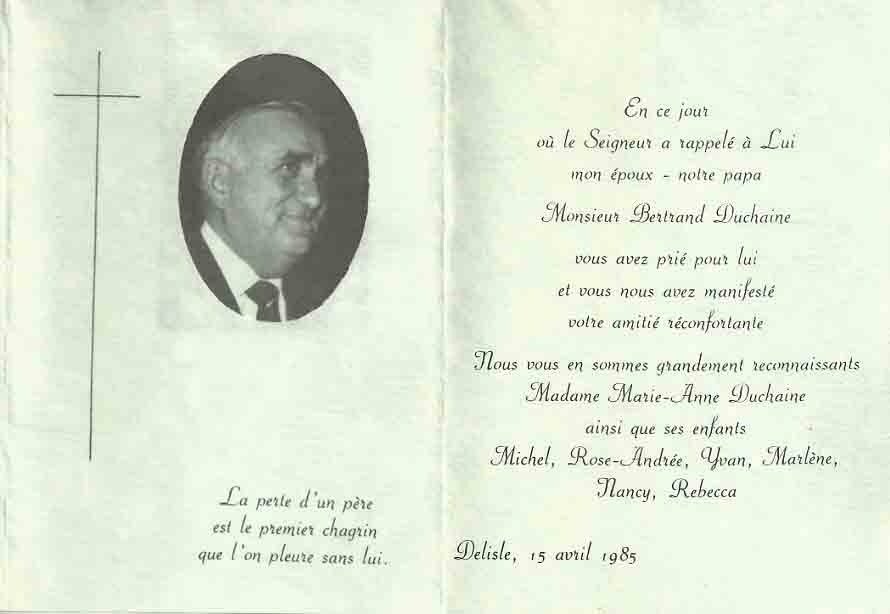 La perte d'un père
est le premier chagrin
que l'on pleure sans lui.
En ce jour
où le Seigneur a rappelé à Lui
mon époux - notre papa
Monsieur Bertrand Duchaine
vous avez prié pour lui
et vous nous avez manifesté
votre amitié réconfortante
Nous vous en sommes grandement reconnaissants
Madame Marie-Anne Duchaine
ainsi que ses enfants
Michel, Rose-Andrée, Yvan, Marlène,
Nancy, Rebecca
Delisle, 15 avril 1985